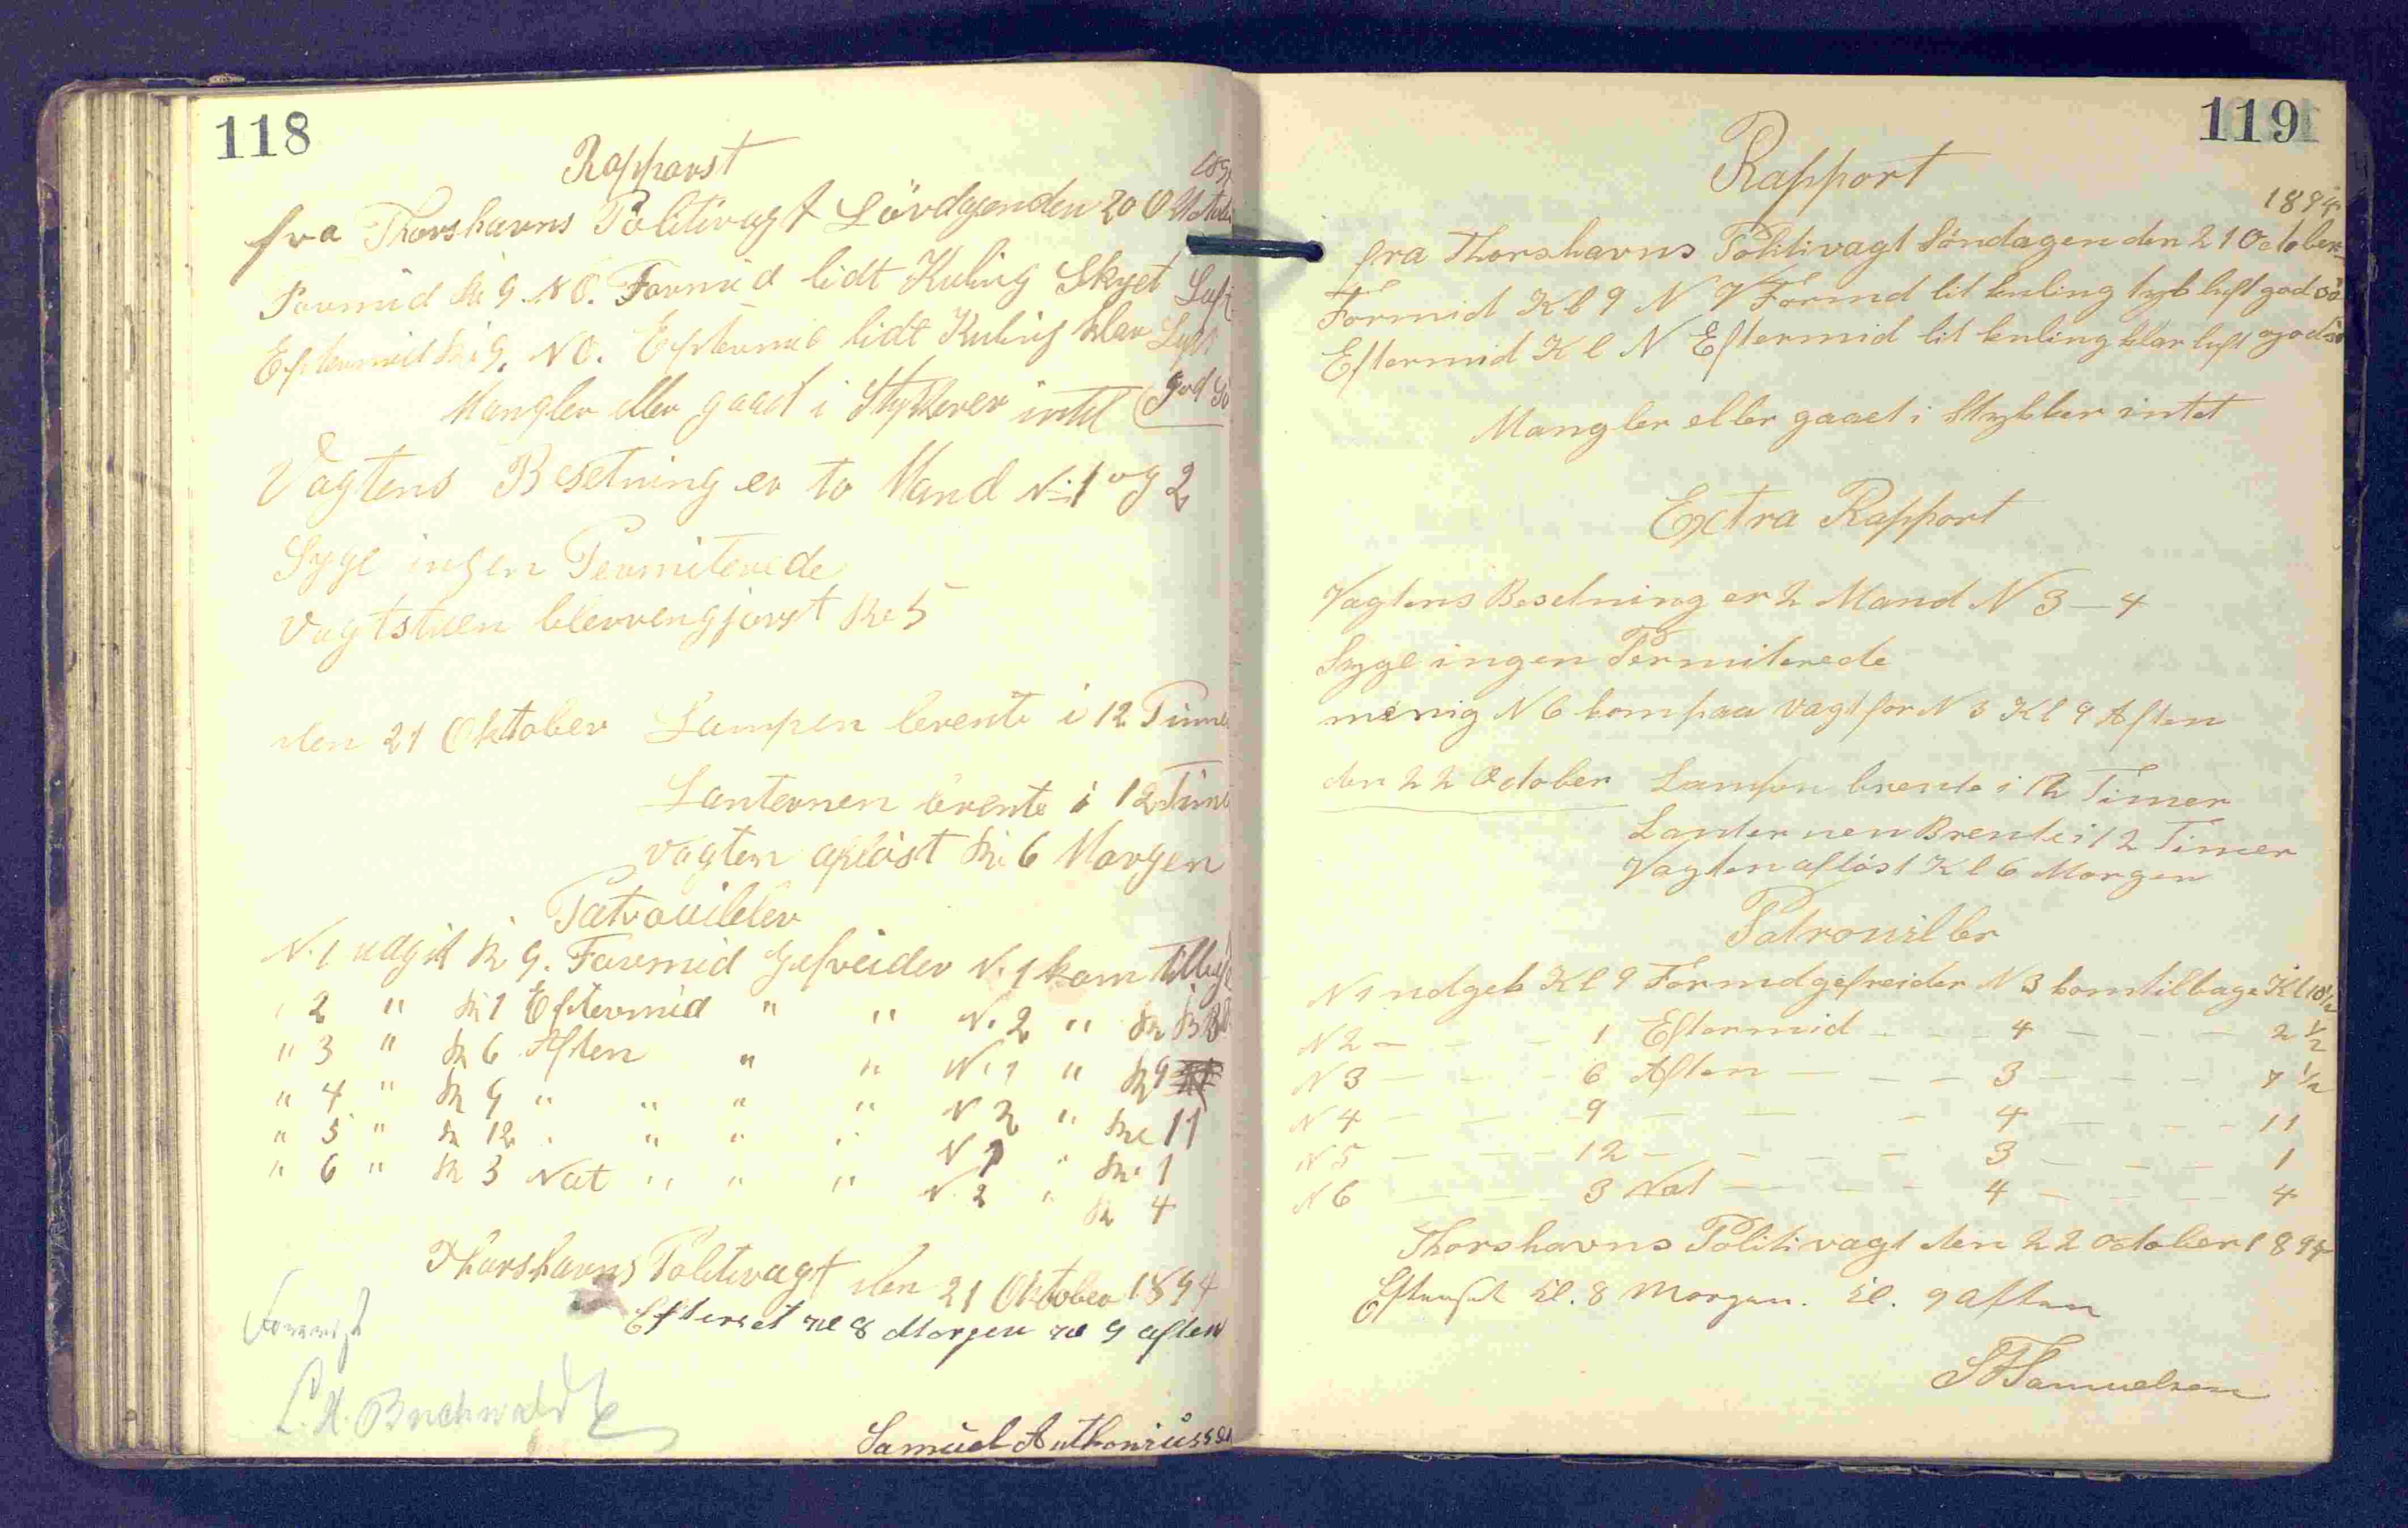 118
Rapporst
189
fra Thorshavns Politivagt Lövdagen den 20 Oktober
Formid Kl 9. NO. Formid lidt Kuling Skyet Luft
Eftermid Kl 9. NO. Eftermid lidt Kuling klar Luft
god Sö
Mangler eller gaaet i Stykkerer intet
Vagtens Besetning er to Mand N. 1 og 2
Syge ingen Permiterede
Vagtstuen blev rengjorst Kl 5
den 21 Oktober Lampen brente i 12 Timer
Lanternen brente i 12 Time
Vagten aflöst Kl 6 Morgen
Patrouiller
N. 1 udgik Kl 9. Formid Gefreider N. 1 kom tilbage
" 2 " Kl 1 Eftermid " " N. 2 " Kl
" 3 " Kl 6 Aften " " N. 1 " Kl 9
" 4 " Kl 9 " " " " N 2 " Kl 11
" 5 " Kl 12 " " " " N 1 " Kl 1
" 6 " Kl 3 Nat " " " N. 2 " Kl 4
Thorshavns Politivagt den 21 Oktober 1894
Efterset Kl 8 Morgen Kl 9 aften
Forevist
L. H. Buchwaldt
Samuel Anthoniussen
119
Rapport
1894
fra Thorshavns Politivagt Söndagen den 21 October
Formid Kl 9 N V Formd lit kuling tyk luft god sö
Eftermid Kl N Eftermid lit kuling klar luft god sö
Mangler eller gaaet i Stykker intet
Extra Rapport
Vagtens Besetning er 2 Mand N 3 — 4
Syge ingen Permiterede
menig N 6 kom paa vagt for N 3 Kl 9 Aften
den 22 October Lampen brente i 12 Timer
Lanternen Brente i 12 Timer
Vagten aflöst Kl 6 Morgen
Patrouiller
N 1 udgek Kl 9 Formd gefreider N 3 kom tilbage Kl 10 1/2
N 2 — — — 1 Eftermid — — 4 — — — 2 1/2
N 3 — — — 6 Aften — — — 3 — — — 7 1/2
N 4 — — — 9 — — — 4 — — — 11
N 5 — — — 12 — — — — 3 — — — 1
N 6 — — — 3 Nat — — — 4 — — — 4
Thorshavns Politivagt den 22 October 1894
Efterset Kl. 8 Morgen. Kl. 9 aften
Samuelsen